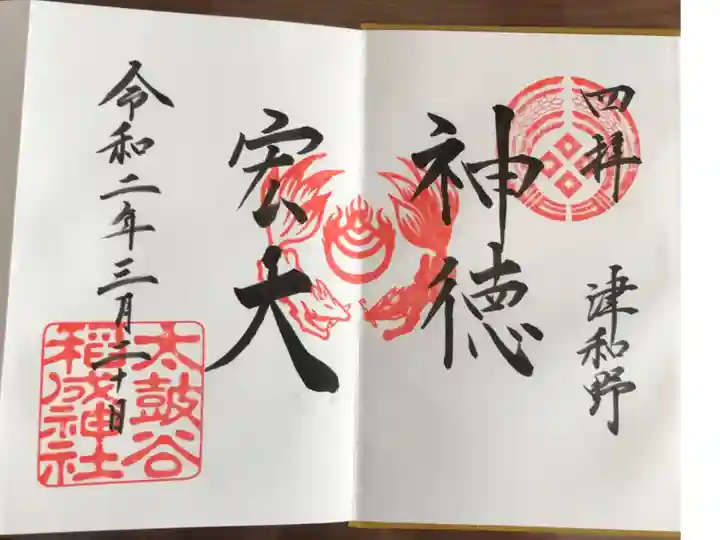 四拝
津和野
神徳
宏大
令和二年三月二十日
太鼓谷
稲成神社